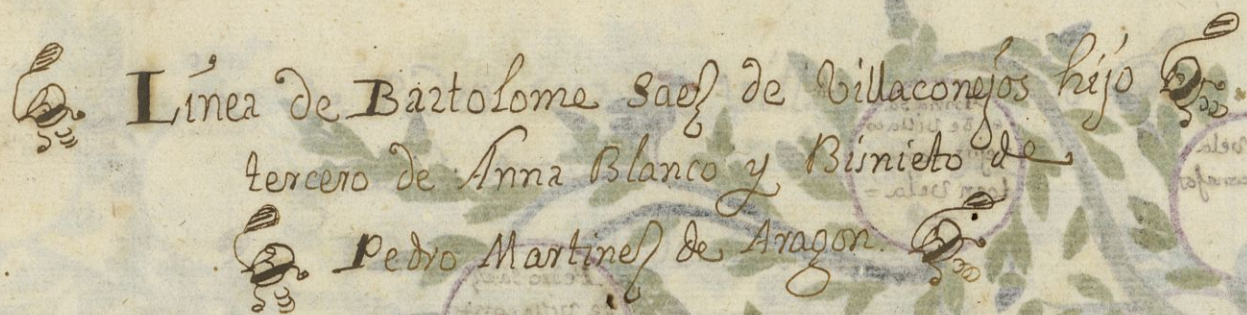 Línea de Bartolome Saez de Villaconejos hijo
tercero de Anna Blanco y Bisnieto de
Pedro Martinez de Aragon.